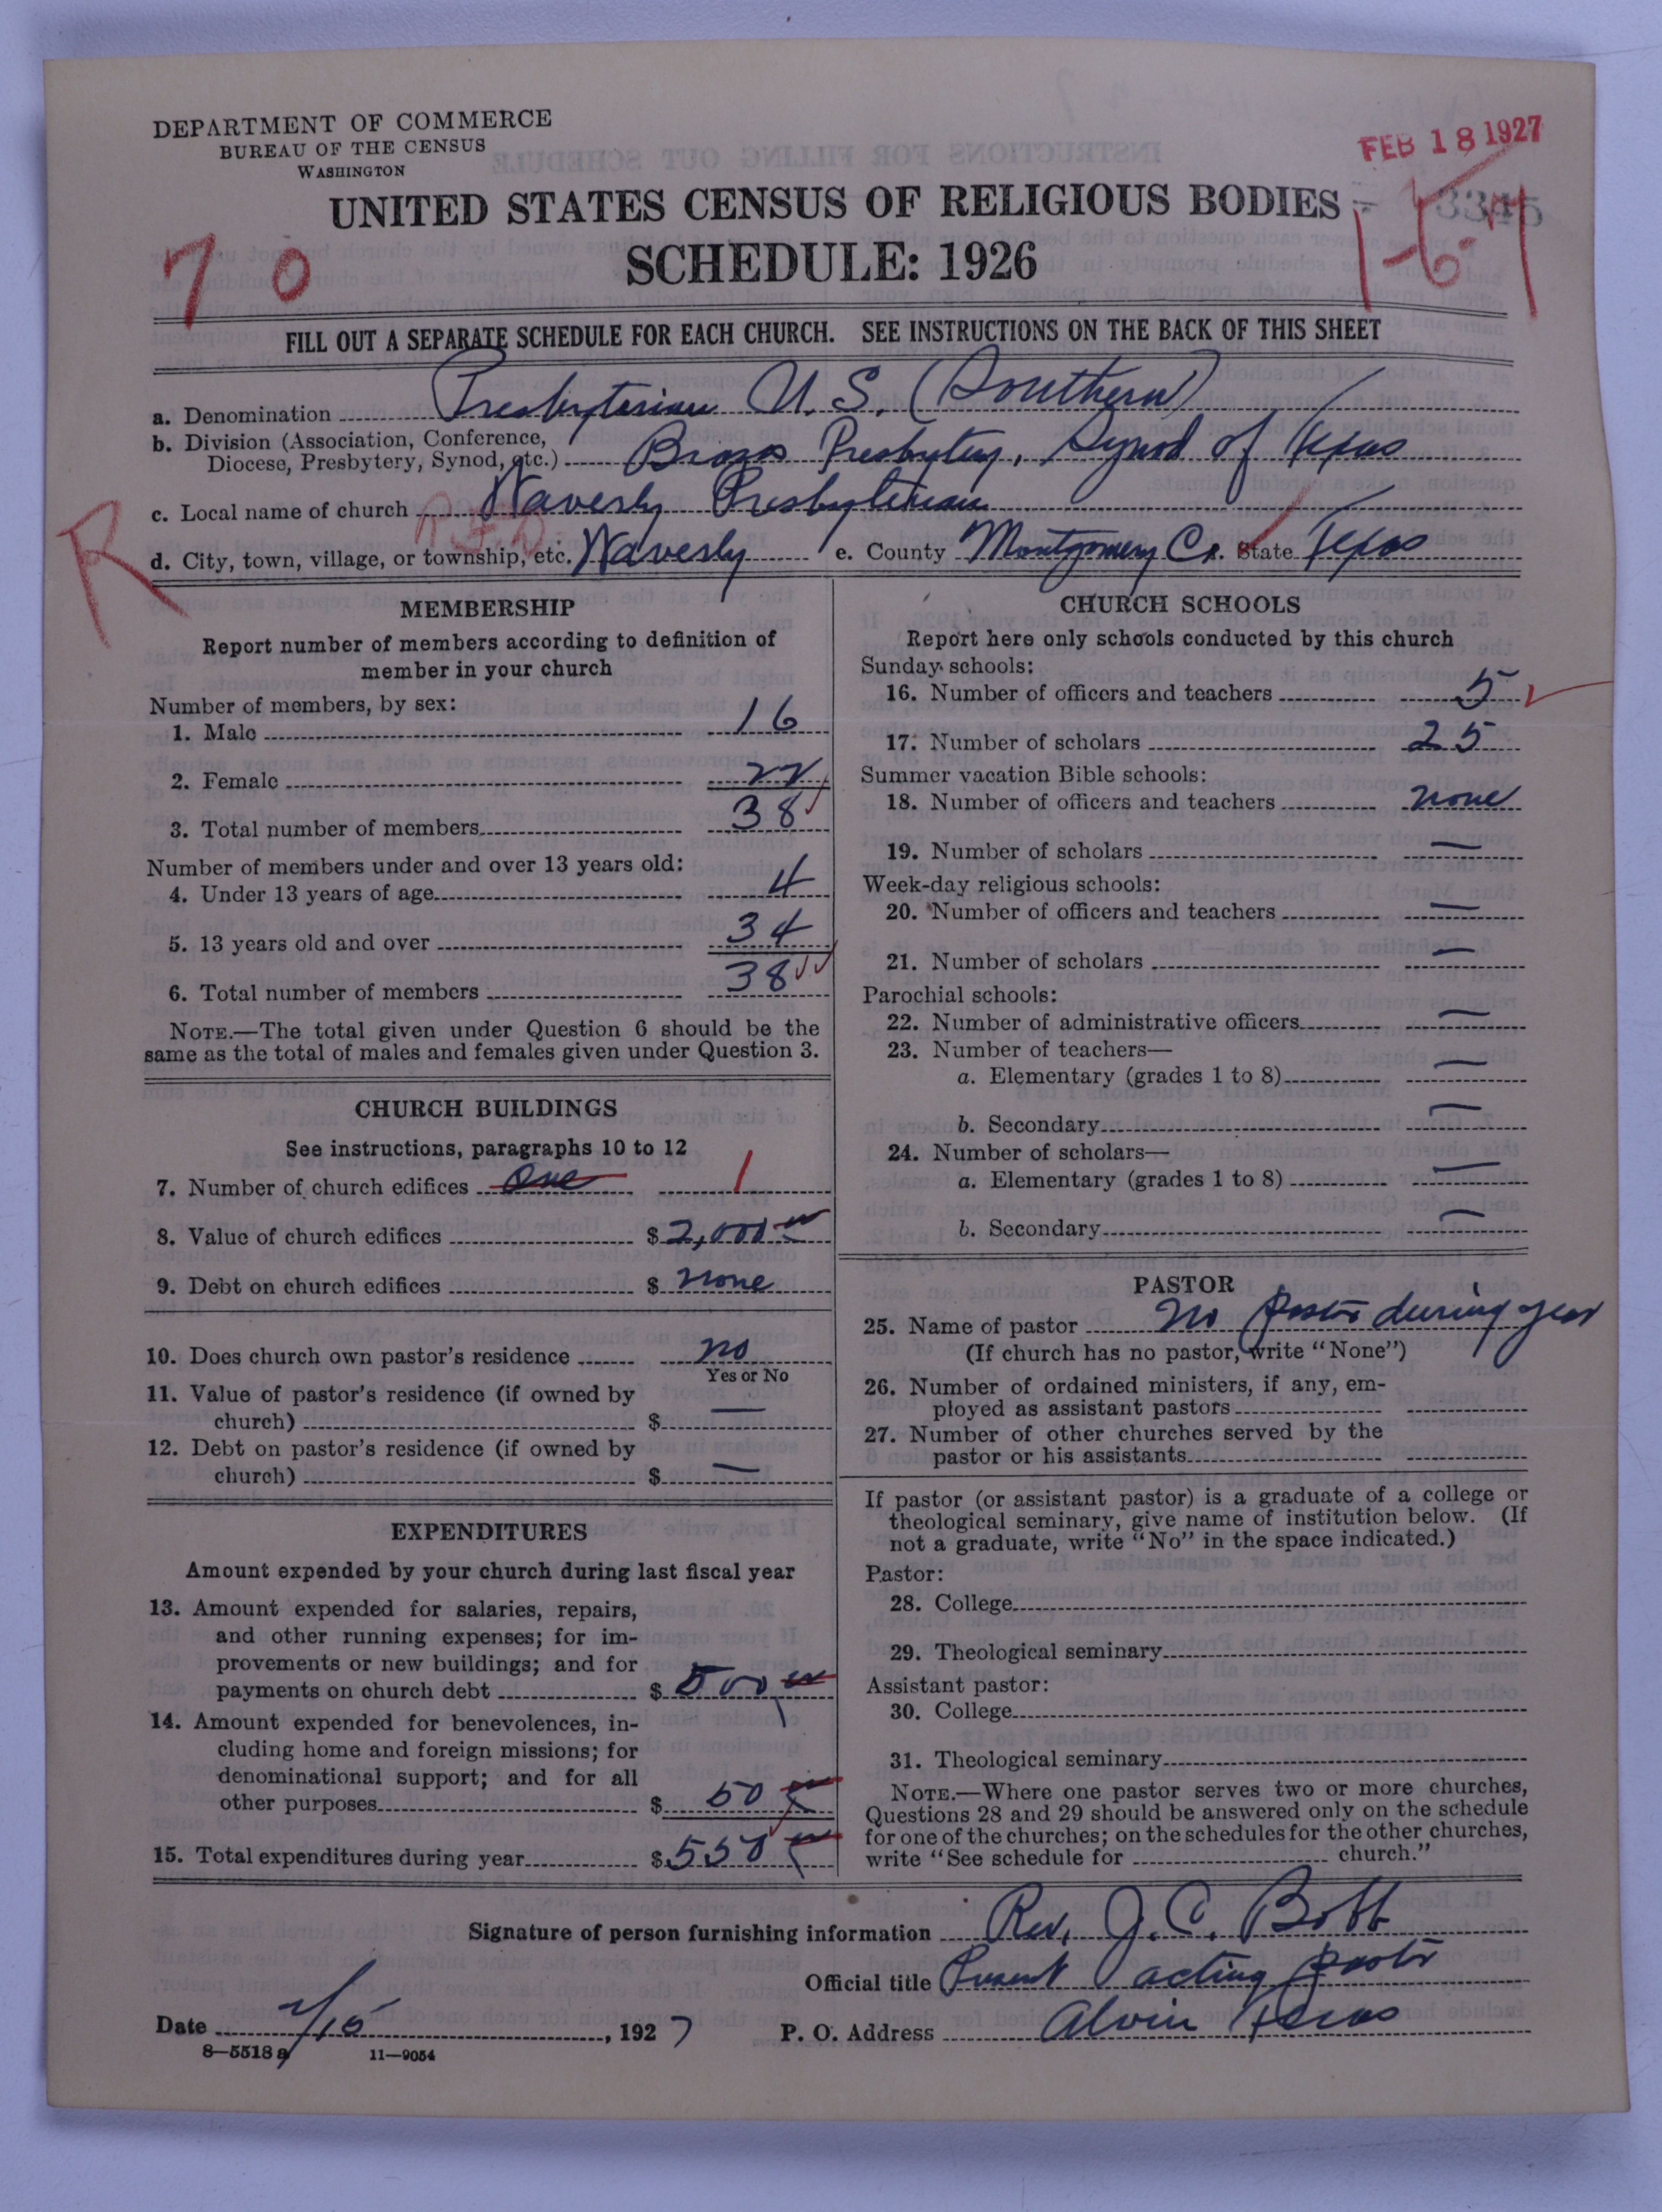 DEPARTMENT OF COMMERCE
BUREAU OF THE CENSUS
WASHINGTON
FEB 18 1927
UNITED STATES CENSUS OF RELIGIOUS BODIES
3345
1-6-
70
SCHEDULE: 1926
FILL OUT A SEPARATE SCHEDULE FOR EACH CHURCH. SEE INSTRUCTIONS ON THE BACK OF THIS SHEET
a. Denomination Presbyterian U.S. (Southern)
b. Division (Association, Conference, Diocese, Presbytery, Synod, etc.) Brazos Presbytery, Synod of Texas
c. Local name of church Waverly Presbyterian
R
d. City, town, village, or township, etc. Waverly e. County Montgomery Co. State Texas
MEMBERSHIP
Report number of members according to definition of
member in your church
Number of members, by sex:
1. Male 16
2. Female 22
3. Total number of members 38
Number of members under and over 13 years old:
4. Under 13 years of age 4
5. 13 years old and over 34
6. Total number of members 38
NOTE.—The total given under Question 6 should be the
same as the total of males and females given under Question 3.
CHURCH BUILDINGS
See instructions, paragraphs 10 to 12
7. Number of church edifices One 1
8. Value of church edifices $2,000
9. Debt on church edifices $ none
10. Does church own pastor's residence no
Yes or No
11. Value of pastor's residence (if owned by
church) $ —
12. Debt on pastor's residence (if owned by
church) $ —
EXPENDITURES
Amount expended by your church during last fiscal year
13. Amount expended for salaries, repairs,
and other running expenses; for im-
provements or new buildings; and for
payments on church debt $ 500
14. Amount expended for benevolences, in-
cluding home and foreign missions; for
denominational support; and for all
other purposes $ 50
15. Total expenditures during year $ 550
CHURCH SCHOOLS
Report here only schools conducted by this church
Sunday schools:
16. Number of officers and teachers 5
17. Number of scholars 25
Summer vacation Bible schools:
18. Number of officers and teachers none
19. Number of scholars —
Week-day religious schools:
20. Number of officers and teachers —
21. Number of scholars —
Parochial schools:
22. Number of administrative officers —
23. Number of teachers—
a. Elementary (grades 1 to 8) —
b. Secondary —
24. Number of scholars—
a. Elementary (grades 1 to 8) —
b. Secondary —
PASTOR
25. Name of pastor no pastor during year
(If church has no pastor, write "None")
26. Number of ordained ministers, if any, em-
ployed as assistant pastors
27. Number of other churches served by the
pastor or his assistants
If pastor (or assistant pastor) is a graduate of a college or
theological seminary, give name of institution below. (If
not a graduate, write "No" in the space indicated.)
Pastor:
28. College
29. Theological seminary
Assistant pastor:
30. College
31. Theological seminary
NOTE.—Where one pastor serves two or more churches,
Questions 28 and 29 should be answered only on the schedule
for one of the churches; on the schedules for the other churches,
write "See schedule for church."
Signature of person furnishing information Rev. J. C. Bobb
Official title Present acting pastor
Date 2/15, 1927 P. O. Address Alvin Texas
8—5518 a 11—9054